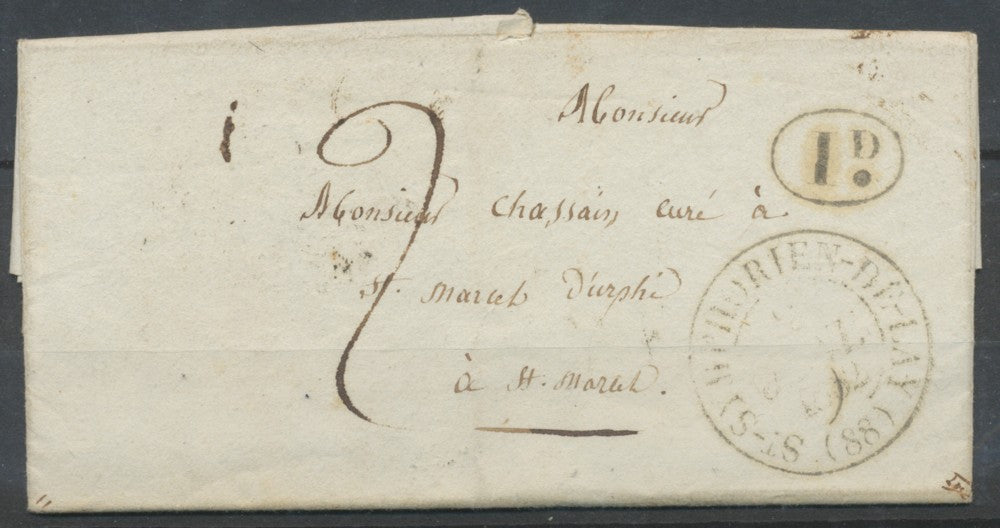 Monsieur
1 D.
Monsieur Chassain curé à
St. Marcel D'urphé
à St. Marcel.
2
ST-SYMPHORIEN-DE-LAY (88)